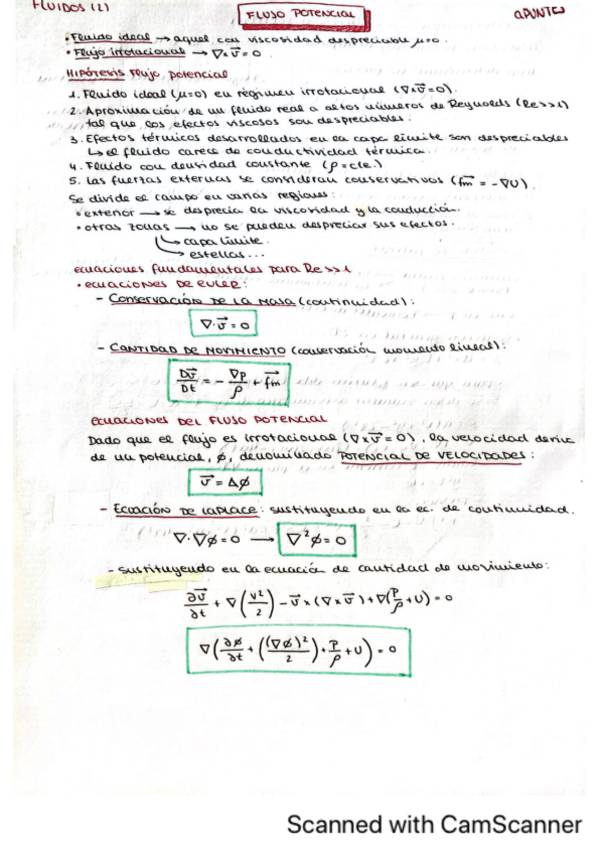 FLUIDOS (2)
FLUJO POTENCIAL
APUNTES
• Fluido ideal → aquel con viscosidad despreciable μ=0.
• Flujo irrotacional → ∇×v⃗ = 0.
HIPÓTESIS Flujo potencial
1. Fluido ideal (μ=0) en régimen irrotacional (∇×v⃗=0).
2. Aproximación de un fluido real a altos números de Reynolds (Re>>1)
tal que los efectos viscosos son despreciables.
3. Efectos térmicos desarrollados en la capa límite son despreciables
↳ el fluido carece de conductividad térmica.
4. Fluido con densidad constante (ρ=cte.)
5. Las fuerzas externas se consideran conservativas (f⃗m = -∇U).
Se divide el campo en varias regiones:
• exterior → se desprecia la viscosidad y la conducción.
• otras zonas → no se pueden despreciar sus efectos.
↳ capa límite.
↳ estelas...
ecuaciones fundamentales para Re>>1
• ecuaciones de EULER:
- CONSERVACIÓN DE LA MASA (continuidad):
∇·v⃗ = 0
- CANTIDAD DE MOVIMIENTO (conservación momento lineal):
Dv⃗/Dt = - ∇p/ρ + f⃗m
ECUACIONES DEL FLUJO POTENCIAL
Dado que el flujo es irrotacional (∇×v⃗ = 0), la velocidad deriva
de un potencial, φ, denominado POTENCIAL DE VELOCIDADES:
v⃗ = Δφ
- ECUACIÓN DE LAPLACE: sustituyendo en la ec. de continuidad.
∇·∇φ = 0 → ∇²φ = 0
- Sustituyendo en la ecuación de cantidad de movimiento:
∂v⃗/∂t + ∇(v²/2) - v⃗×(∇×v⃗) + ∇(P/ρ + U) = 0
∇(∂φ/∂t + ((∇φ)²/2) + P/ρ + U) = 0
Scanned with CamScanner